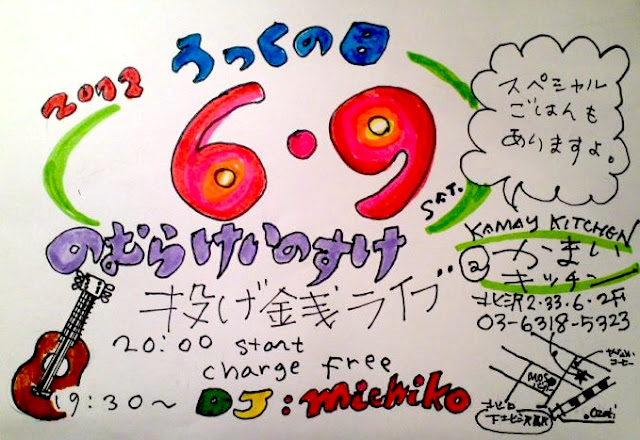 2012
ろっくの日
6・9
SAT.
スペシャル
ごはんも
ありますよ。
のむらけいのすけ
投げ銭ライブ
20:00 start
charge free
19:30〜 DJ:michiko
KAMAY KITCHEN
かまい
キッチン
北沢2.33.6.2F
03-6318-5323
MOS
北口
下北沢駅
Ozeki